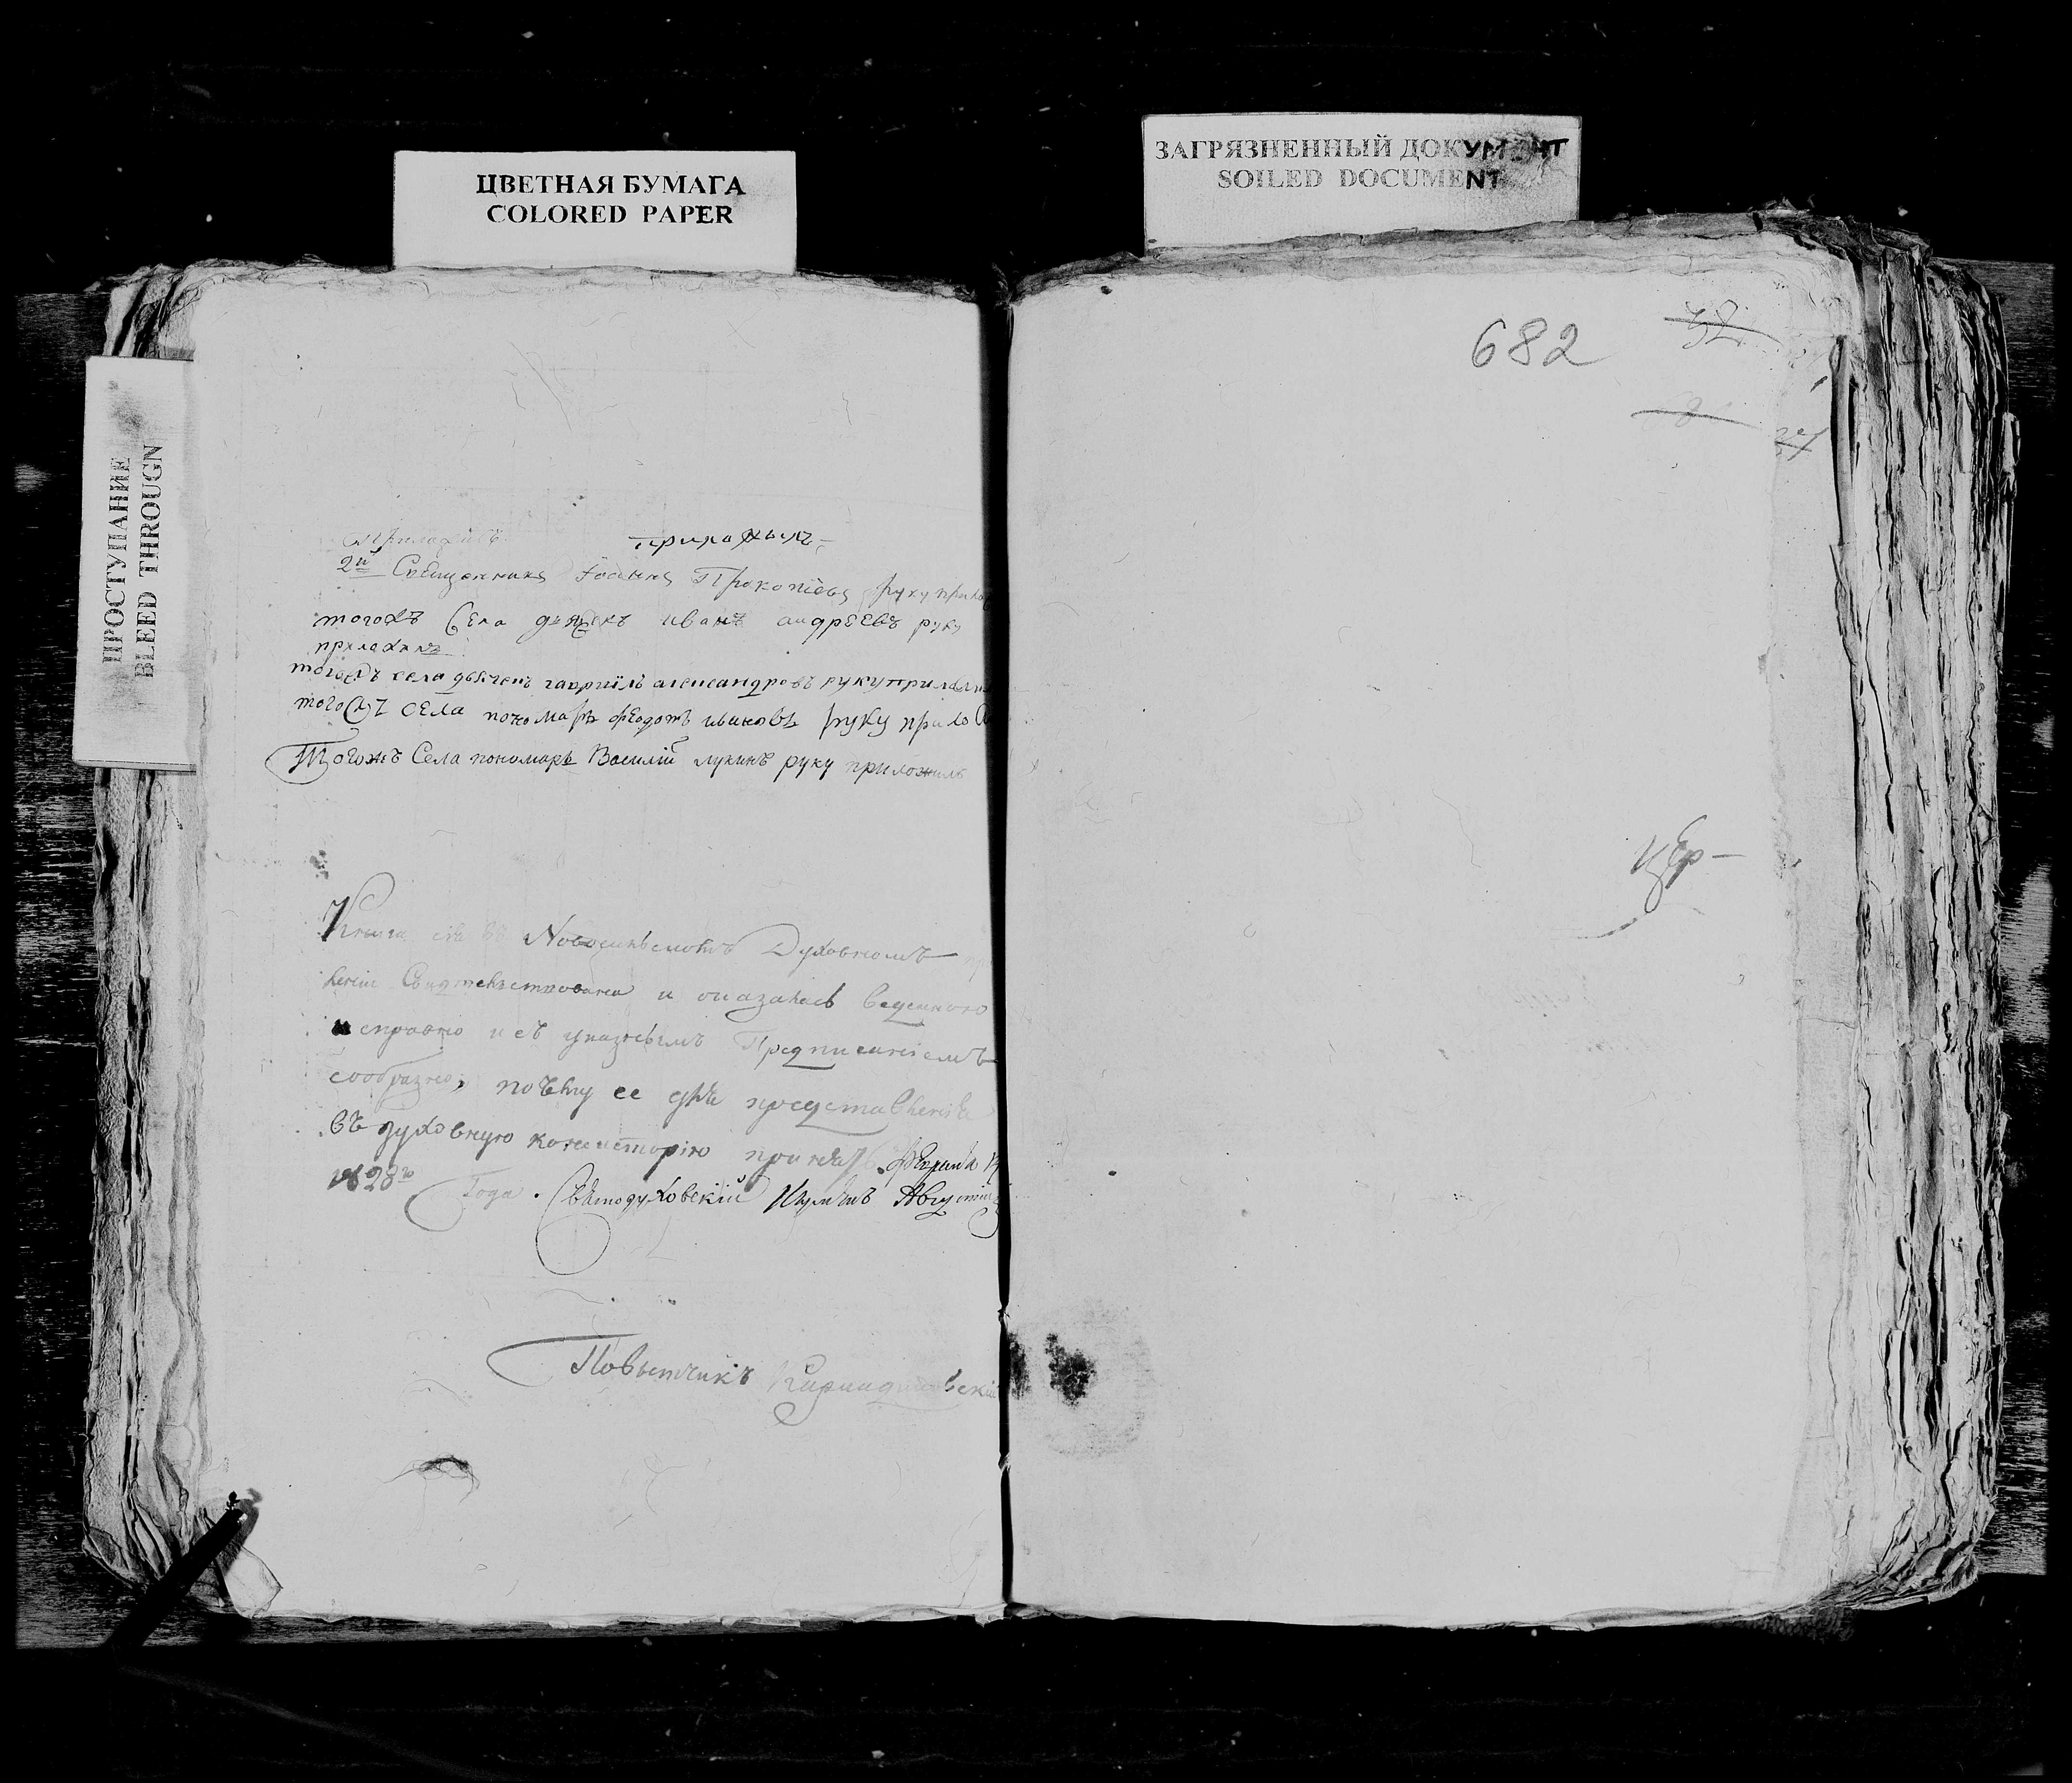 ЦВЕТНАЯ БУМАГА
COLORED PAPER
ЗАГРЯЗНЕННЫЙ ДОКУМЕНТ
SOILED DOCUMENT
ПРОСТУПАНИЕ
BLEED THROUGN
приложилъ
2й Священникъ Іоаннъ Прокопіевъ руку прило
тогожъ Села дьячекъ иванъ андрѣевъ руку
приложилъ
тогожъ села дьячекъ гавріилъ александровъ руку приложи
тогожъ села пономарь феодотъ ивановъ руку прило
Тогожъ Села пономарь Василій лукинъ руку приложилъ
Книга сія въ Новосильскомъ Духовномъ
леніи Свидѣтельствована и оказалась веденною
исправно и съ указнымъ Предписаніемъ
сообразно, почему ее для представленія
въ духовную консисторію принялъ
1828го Года. Святодуховскій Игуменъ Августин
Повытчикъ
682
52
цер-